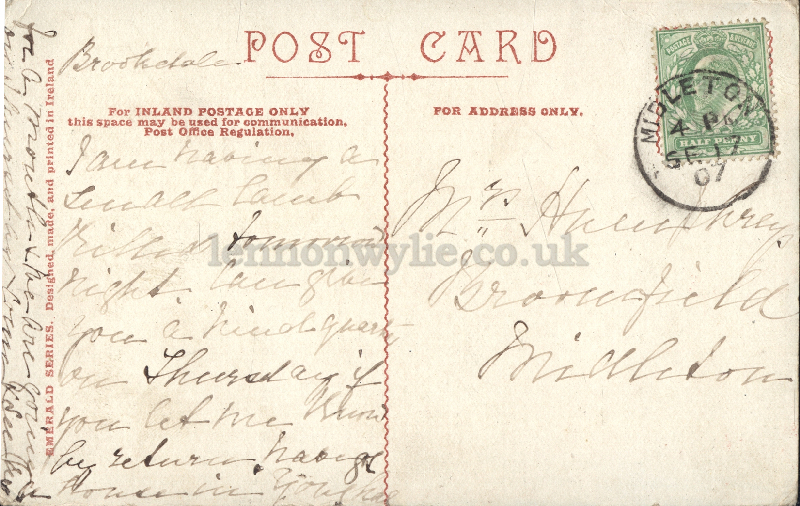 POST CARD
Brookdale
For INLAND POSTAGE ONLY
this space may be used for communication,
Post Office Regulation.
FOR ADDRESS ONLY.
I am having a
small lamb
killed tomorrow
night. Can give
you a hind quarter
on Thursday if
you let me know
by return. Have got
a house in Youghal
for a month & we are going
Mrs. Humphreys
Broomfield
Midleton
POSTAGE & REVENUE
HALF PENNY
MIDLETON
4 PM
SE 17
07
EMERALD SERIES. Designed, made, and printed in Ireland
lennonwylie.co.uk